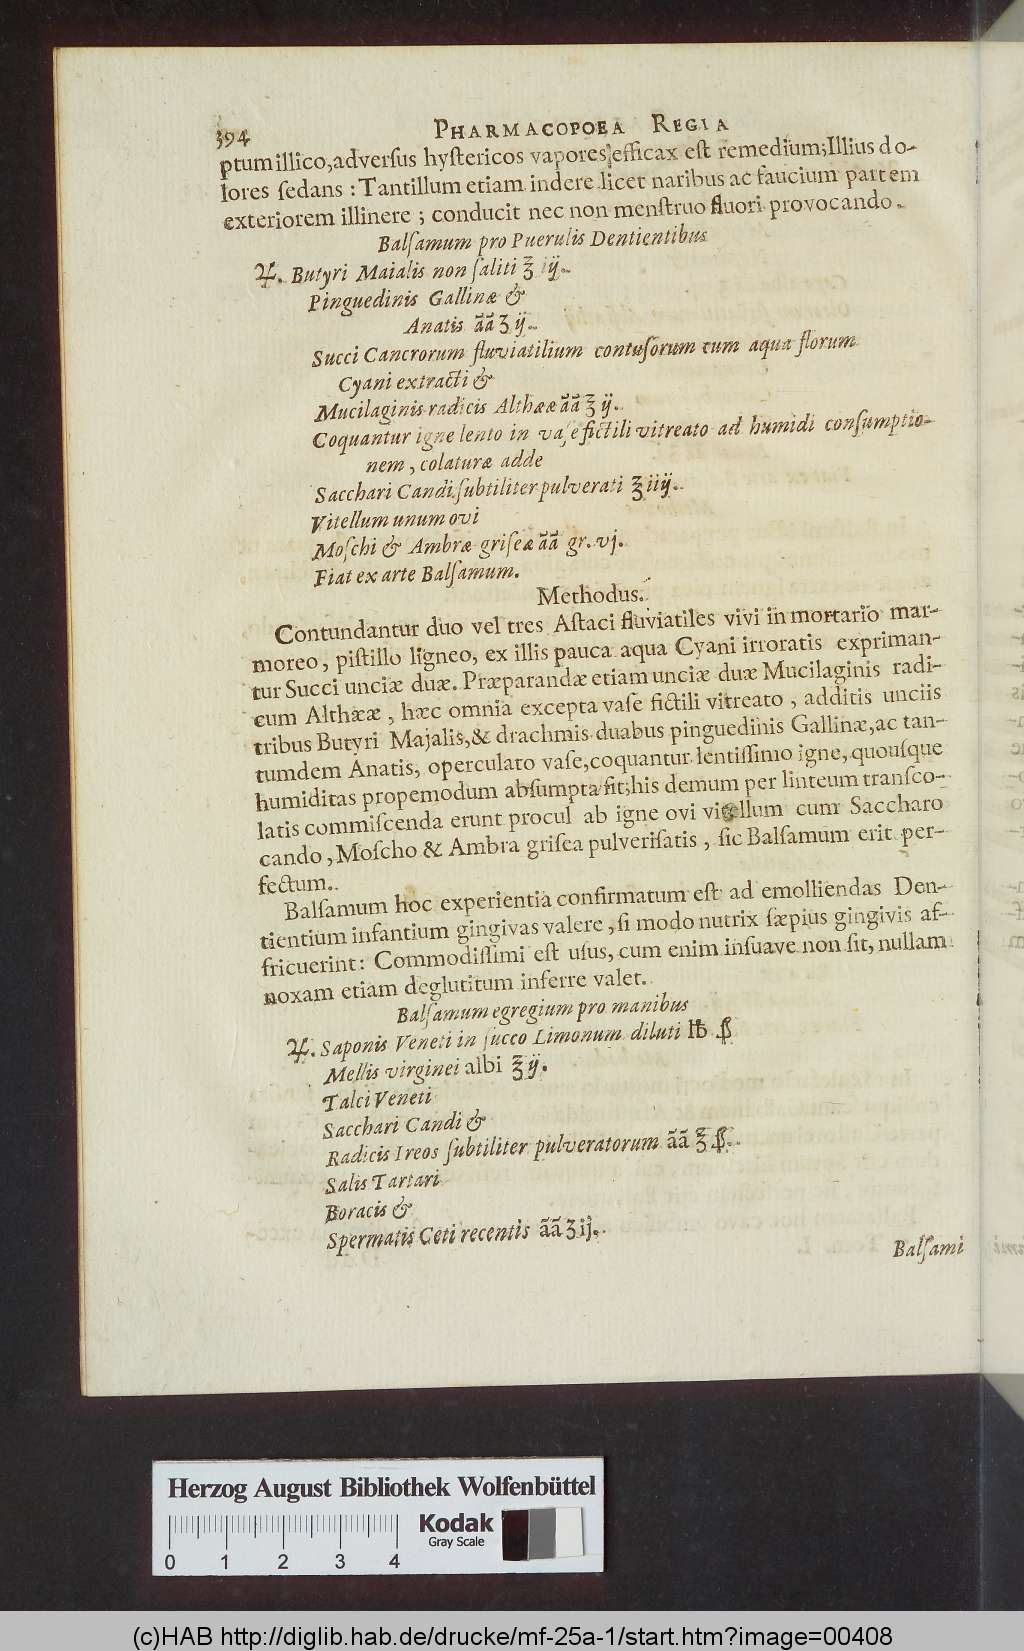 394 PHARMACOPOEA REGIA
ptum illico, adversus hystericos vapores efficax est remedium; Illius do-
lores sedans: Tantillum etiam indere licet naribus ac faucium partem
exteriorem illinere; conducit nec non menstruo fluori provocando.
Balſamum pro Puerulis Dentientibus
♃. Butyri Maialis non ſaliti ℥ iij.
Pinguedinis Gallinæ &
Anatis ãã ʒ ij.
Succi Cancrorum fluviatilium contuſorum cum aqua florum
Cyani extracti &
Mucilaginis radicis Altheæ ãã ℥ ij.
Coquantur igne lento in vaſe fictili vitreato ad humidi conſumptio-
nem, colaturæ adde
Sacchari Candi ſubtiliter pulverati ℥ iiij.
Vitellum unum ovi
Moſchi & Ambræ griſeæ ãã gr. vj.
Fiat ex arte Balſamum.
Methodus.
Contundantur duo vel tres Aſtaci fluviatiles vivi in mortario mar-
moreo, piſtillo ligneo, ex illis pauca aqua Cyani irroratis expriman-
tur Succi unciæ duæ. Præparandæ etiam unciæ duæ Mucilaginis radi-
cum Althææ, hæc omnia excepta vaſe fictili vitreato, additis unciis
tribus Butyri Majalis, & drachmis duabus pinguedinis Gallinæ, ac tan-
tumdem Anatis, operculato vaſe, coquantur lentiſſimo igne, quouſque
humiditas propemodum abſumpta fit; his demum per linteum tranſco-
latis commiſcenda erunt procul ab igne ovi vitellum cum Saccharo
cando, Moſcho & Ambra griſea pulveriſatis, ſic Balſamum erit per-
fectum.
Balſamum hoc experientia confirmatum eſt ad emolliendas Den-
tientium infantium gingivas valere, ſi modo nutrix ſæpius gingivis af-
fricuerint: Commodiſſimi eſt uſus, cum enim inſuave non ſit, nullam
noxam etiam deglutitum inferre valet.
Balſamum egregium pro manibus
♃. Saponis Veneti in ſucco Limonum diluti ℔ ß
Mellis virginei albi ℥ ij.
Talci Veneti
Sacchari Candi &
Radicis Ireos ſubtiliter pulveratorum ãã ℥ ß.
Salis Tartari
Boracis &
Spermatis Ceti recentis ãã ʒ ij.
Balſami
Herzog August Bibliothek Wolfenbüttel
0 1 2 3 4
Kodak
Gray Scale
(c)HAB http://diglib.hab.de/drucke/mf-25a-1/start.htm?image=00408